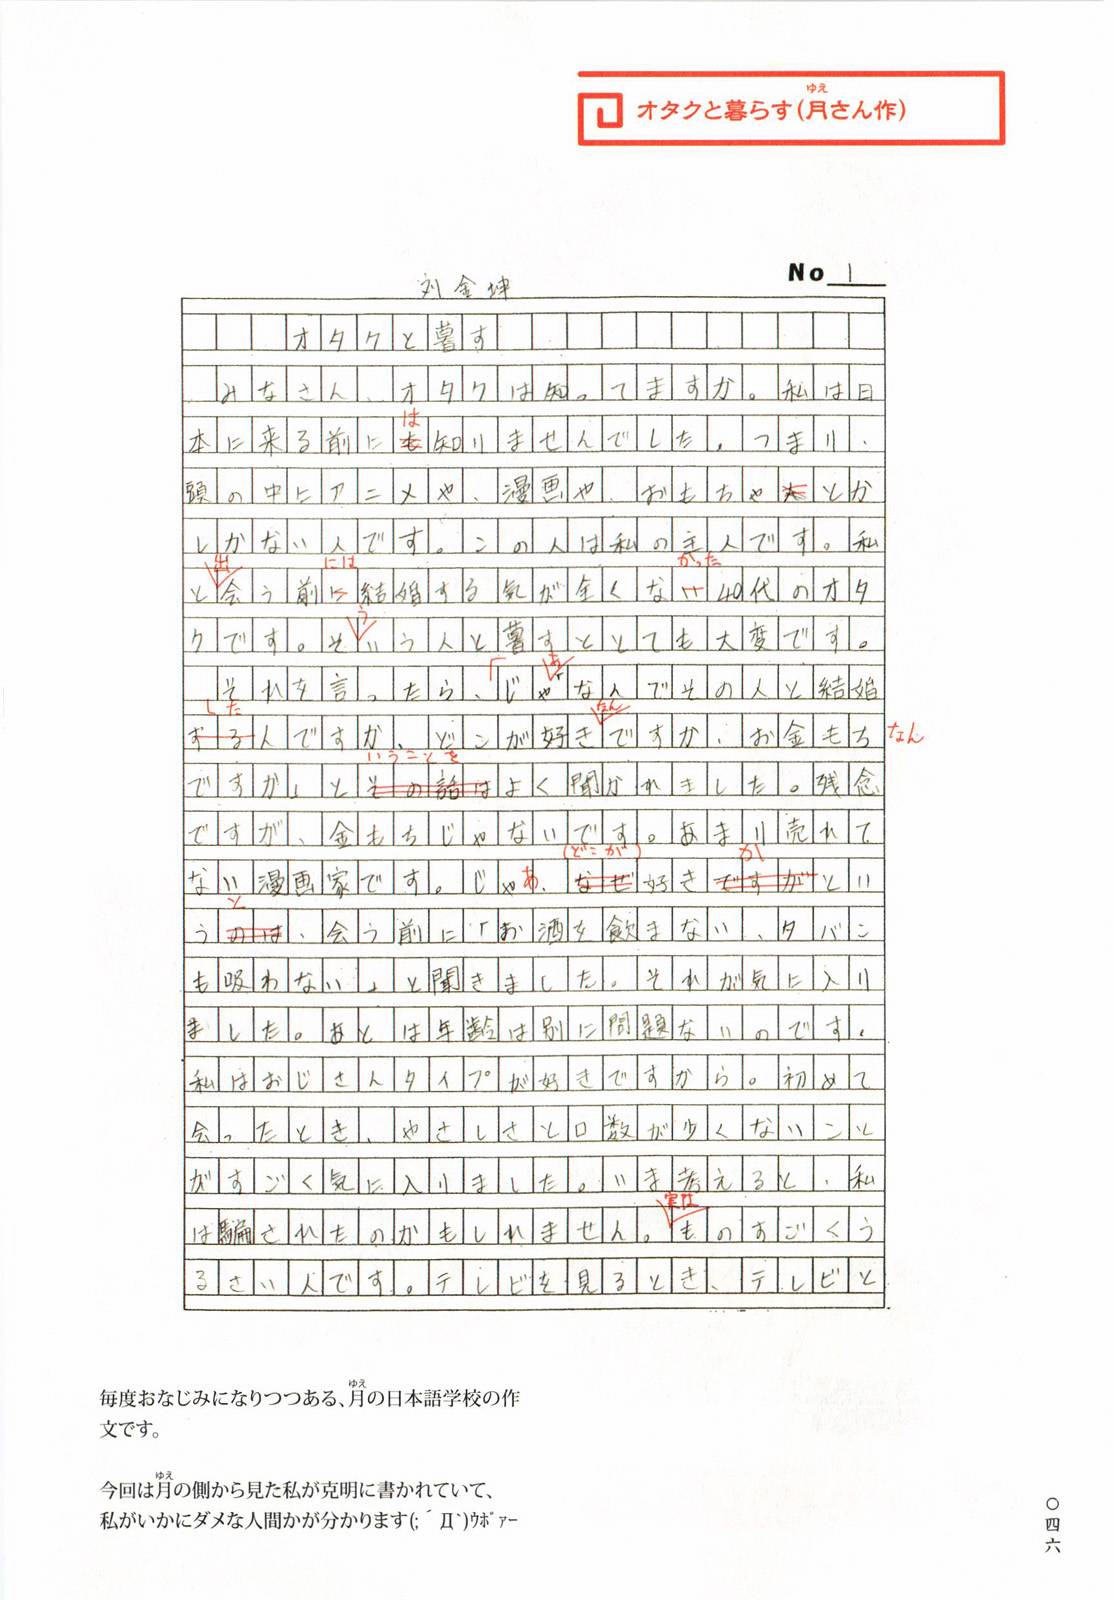 オタクと暮らす(月さん作)
ゆえ
No 1
刘金坤
オタクと暮す
みなさん、オタクは知ってますか。私は日
は
本に来る前にも知りませんでした。つまり、
頭の中にアニメや、漫画や、おもちゃとか
しかない人です。この人は私の主人です。私
出 には かった
と会う前に結婚する気が全くない40代のオタ
う
クです。そいう人と暮すととても大変です。
「 あ
それを言ったら、じゃ「なんでその人と結婚
した なん
する人ですか、どこが好きですか、お金もち なん
いうことを
ですか」とその話はよく聞かれました。残念
ですが、金もちじゃないです。あまり売れて
(どこが) か
ない漫画家です。じゃあ、なぜ好きですがとい
と
うのは、会う前に「お酒を飲まない、タバコ
も吸わない」と聞きました。それが気に入り
ました。あとは年齢は別に問題ないのです。
私はおじさんタイプが好きですから。初めて
会ったとき、やさしさと口数が少くないこと
がすごく気に入りました。いま考えると、私
実は
は騙されたのかもしれません。ものすごくう
るさい人です。テレビを見るとき、テレビと
毎度おなじみになりつつある、月の日本語学校の作
ゆえ
文です。
今回は月の側から見た私が克明に書かれていて、
ゆえ
私がいかにダメな人間かが分かります(;´Д`)ｳﾎﾞｧｰ
〇四六